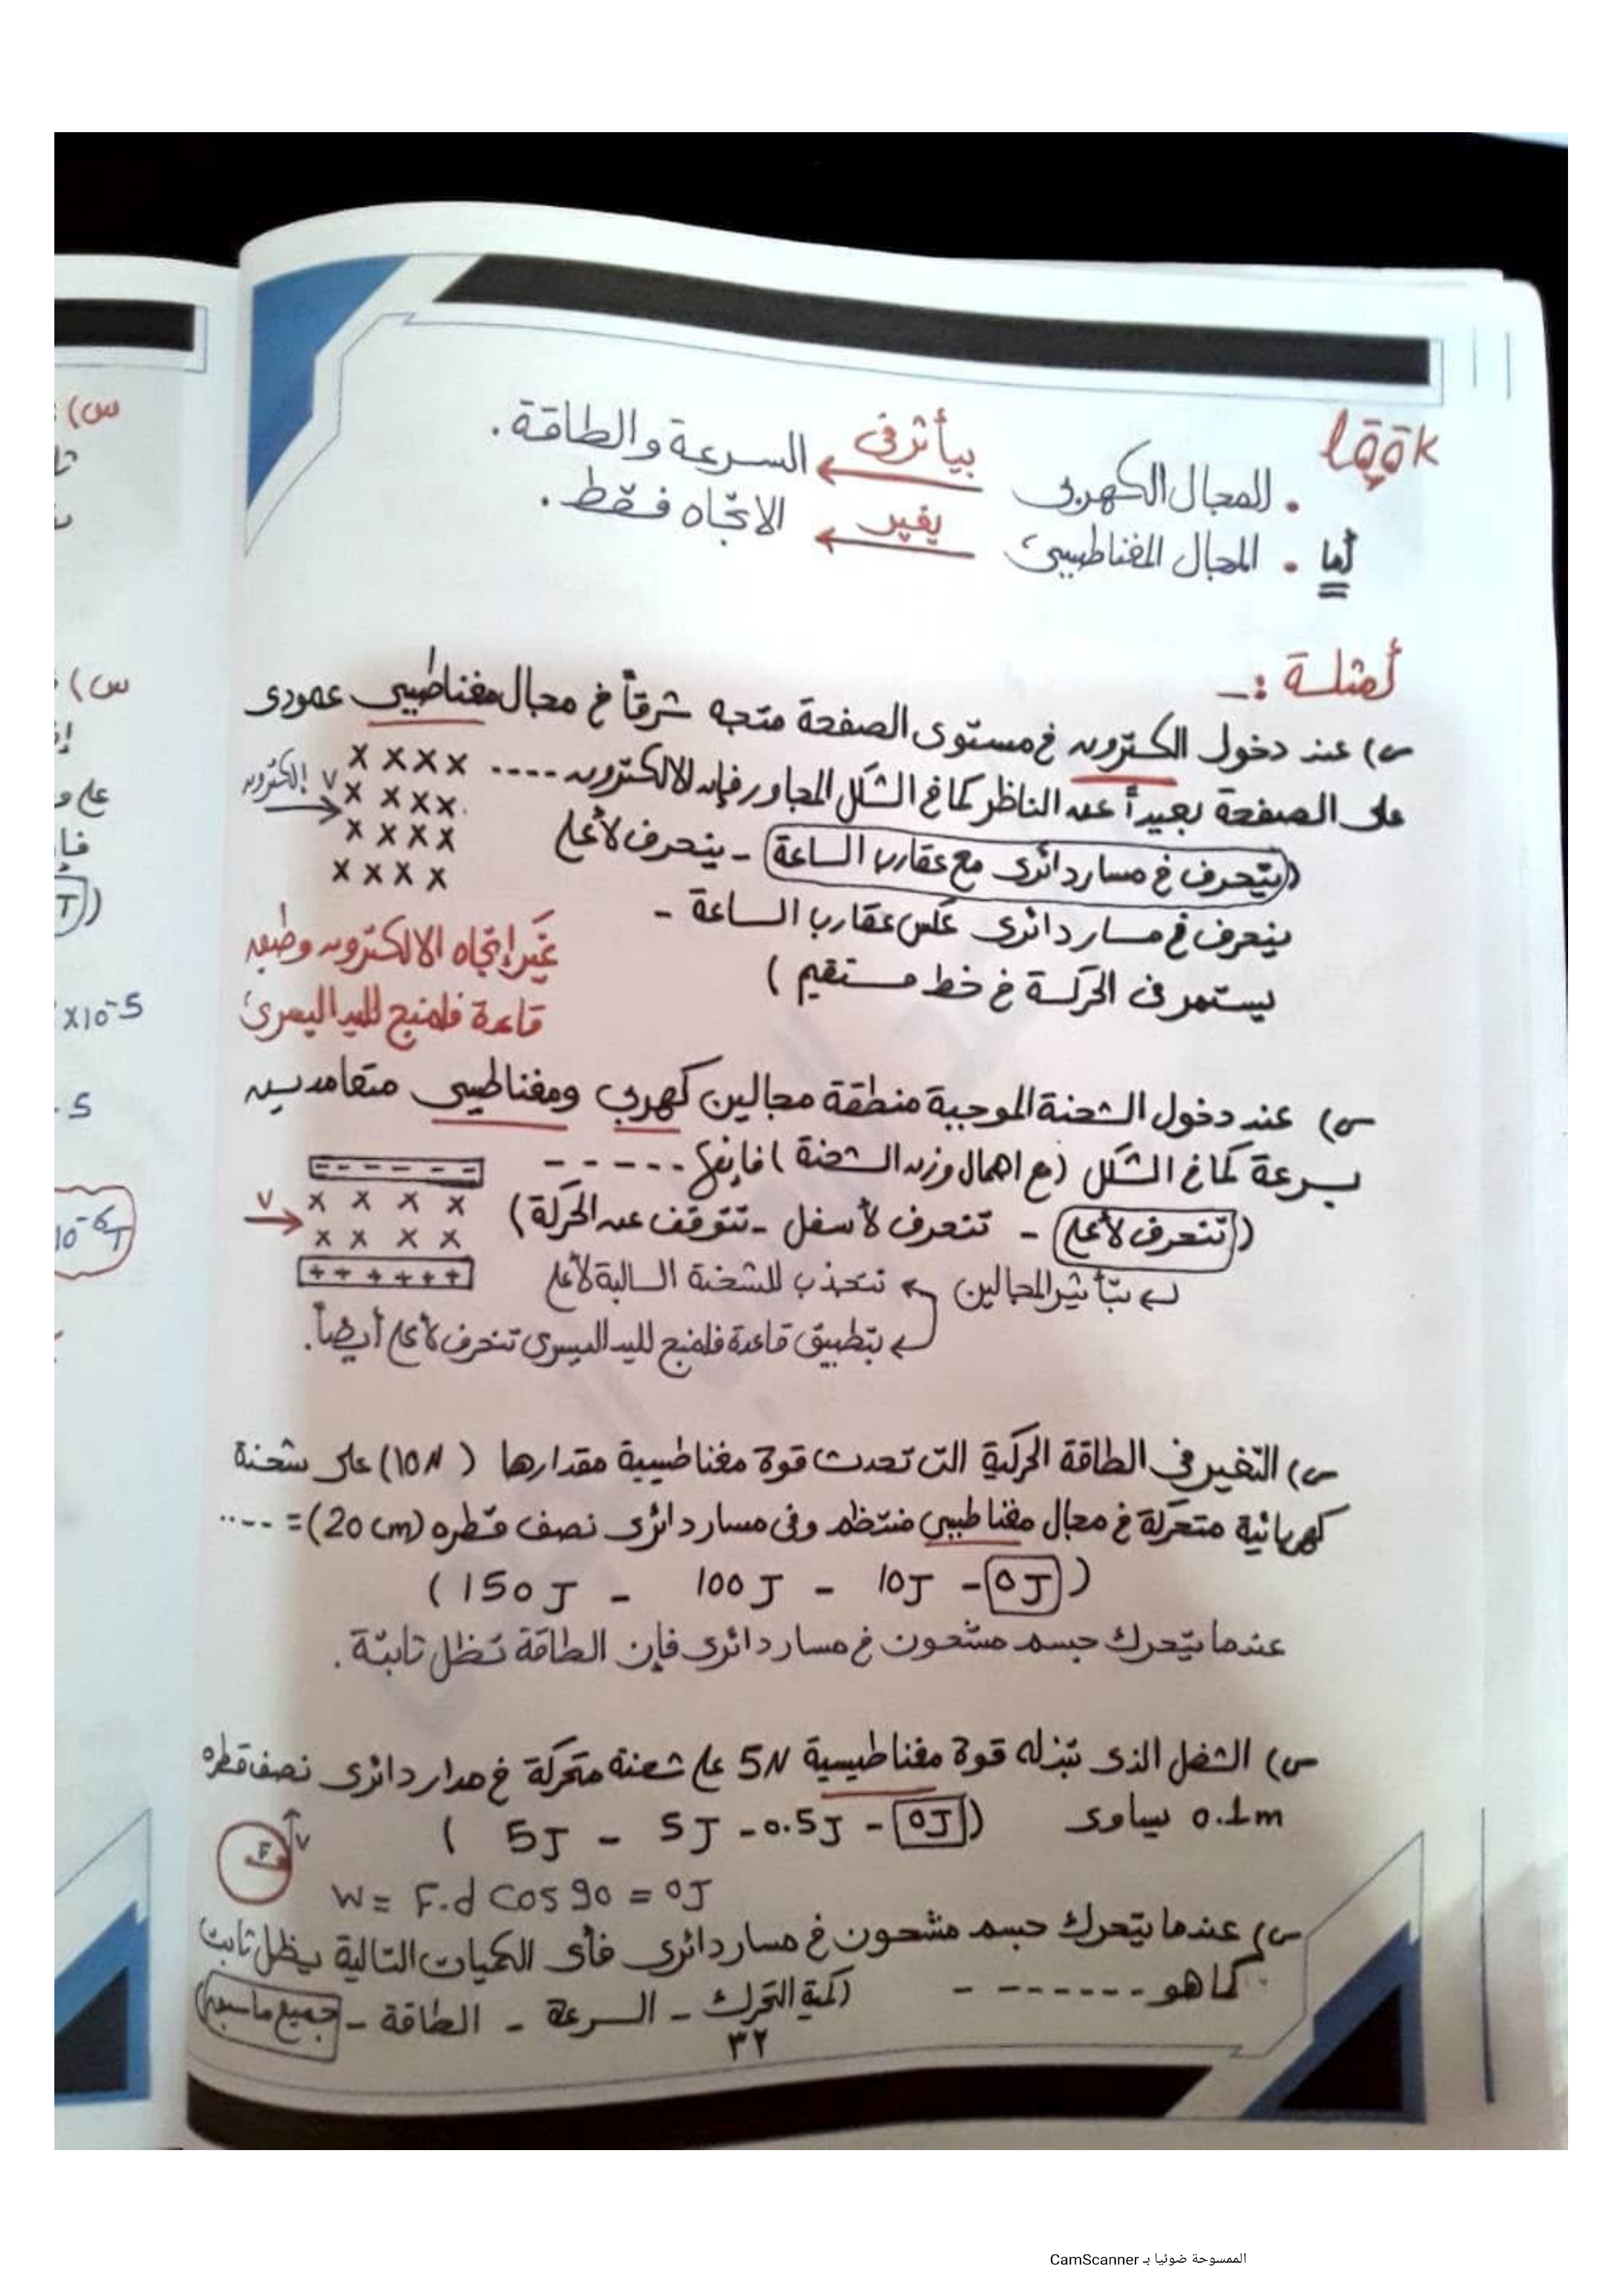 look
• المجال الكهربى بيأثر فى السرعة والطاقة .
أما • المجال المغناطيسى يغير الاتجاه فقط .
أمثلة :-
س) عند دخول الكترون فى مستوى الصفحة متجه شرقاً فى مجال مغناطيسى عمودى
على الصفحة بعيداً عن الناظر كما فى الشكل المجاور فإن الالكترون ....
(يتحرف فى مسار دائرى مع عقارب الساعة - ينحرف لأعلى
ينحرف فى مسار دائرى عكس عقارب الساعة -
يستمر فى الحركة فى خط مستقيم )
x x x x
إلكترون v x x x x
x x x x
x x x x
غير إتجاه الالكترون وطبق
قاعدة فلمنج لليد اليسرى
س) عند دخول الشحنة الموجبة منطقة مجالين كهربى ومغناطيسى متعامدين
بسرعة كما فى الشكل (مع اهمال وزن الشحنة) فإنها -----
(تنحرف لأعلى - تنحرف لأسفل - تتوقف عن الحركة)
- - - - - -
v x x x x
x x x x
+ + + + + +
بتأثير المجالين تنجذب للشحنة السالبة لأعلى
بتطبيق قاعدة فلمنج لليد اليسرى تنحرف لأعلى أيضاً .
س) التغير فى الطاقة الحركية التى تحدث قوة مغناطيسية مقدارها (10N) على شحنة
كهربائية متحركة فى مجال مغناطيسى منتظم وفى مسار دائرى نصف قطره (20 cm) = ....
(0J - 10J - 100J - 150J)
عندما يتحرك جسم مشحون فى مسار دائرى فإن الطاقة تظل ثابتة .
س) الشغل الذى تبذله قوة مغناطيسية 5N على شحنة متحركة فى مدار دائرى نصف قطره
0.1m يساوى (0J - 0.5J - 5J - 5J)
F v
W = F.d cos 90 = 0J
س) عندما يتحرك جسم مشحون فى مسار دائرى فأى الكميات التالية يظل ثابت
كما هو ------- (كمية التحرك - السرعة - الطاقة - جميع ما سبق)
٣٢
س) :
س) :
على و
T)
x10-5
5
10-6 T
الممسوحة ضوئيا بـ CamScanner